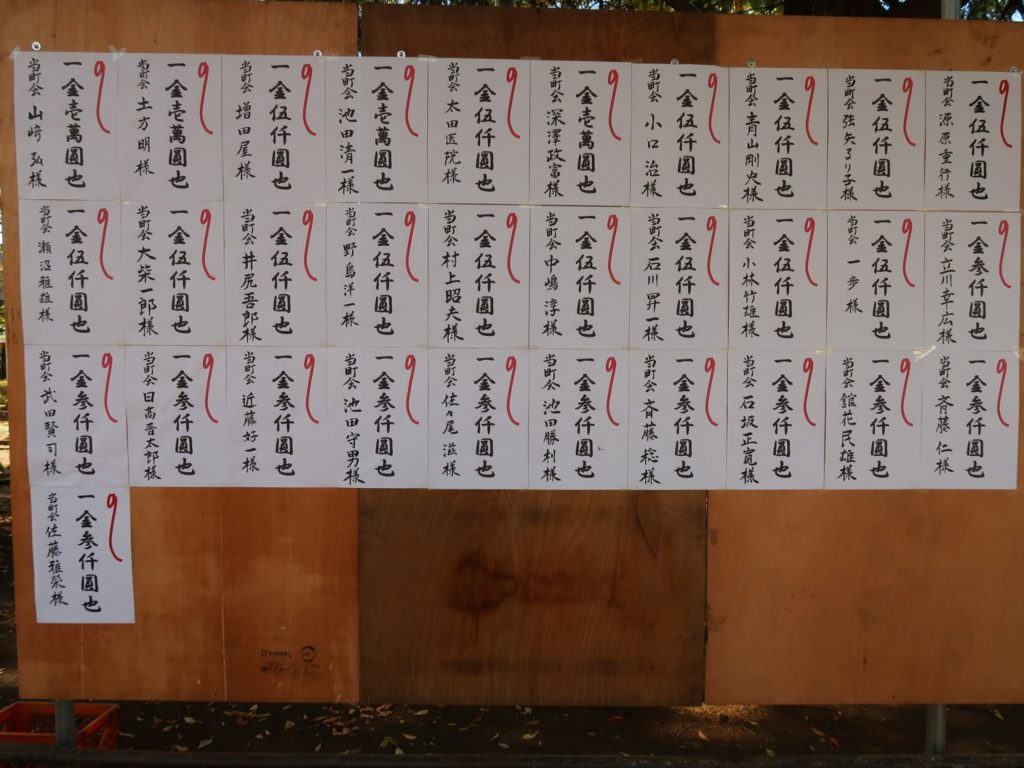 一金壱萬圓也
当町会 山﨑弘様
一金壱萬圓也
当町会 土方明様
一金伍仟圓也
当町会 増田屋様
一金壱萬圓也
当町会 池田清一様
一金伍仟圓也
当町会 太田医院様
一金壱萬圓也
当町会 深澤政富様
一金伍仟圓也
当町会 小口治様
一金伍仟圓也
当町会 青山剛史様
一金伍仟圓也
当町会 弦矢るり子様
一金伍仟圓也
当町会 源原重行様
一金伍仟圓也
当町会 瀬沼雅雄様
一金伍仟圓也
当町会 大柴一郎様
一金伍仟圓也
当町会 井尻吾郎様
一金伍仟圓也
当町会 野島洋一様
一金伍仟圓也
当町会 村上昭夫様
一金伍仟圓也
当町会 中嶋淳様
一金伍仟圓也
当町会 石川昇一様
一金伍仟圓也
当町会 小林竹雄様
一金伍仟圓也
当町会 一歩様
一金参仟圓也
当町会 立川幸広様
一金参仟圓也
当町会 武田賢司様
一金参仟圓也
当町会 日高晋太郎様
一金参仟圓也
当町会 近藤好一様
一金参仟圓也
当町会 池田守男様
一金参仟圓也
当町会 佐々尾滋様
一金参仟圓也
当町会 池田勝利様
一金参仟圓也
当町会 斉藤稔様
一金参仟圓也
当町会 石坂正寛様
一金参仟圓也
当町会 舘花民雄様
一金参仟圓也
当町会 斉藤仁様
一金参仟圓也
当町会 佐藤雅栄様